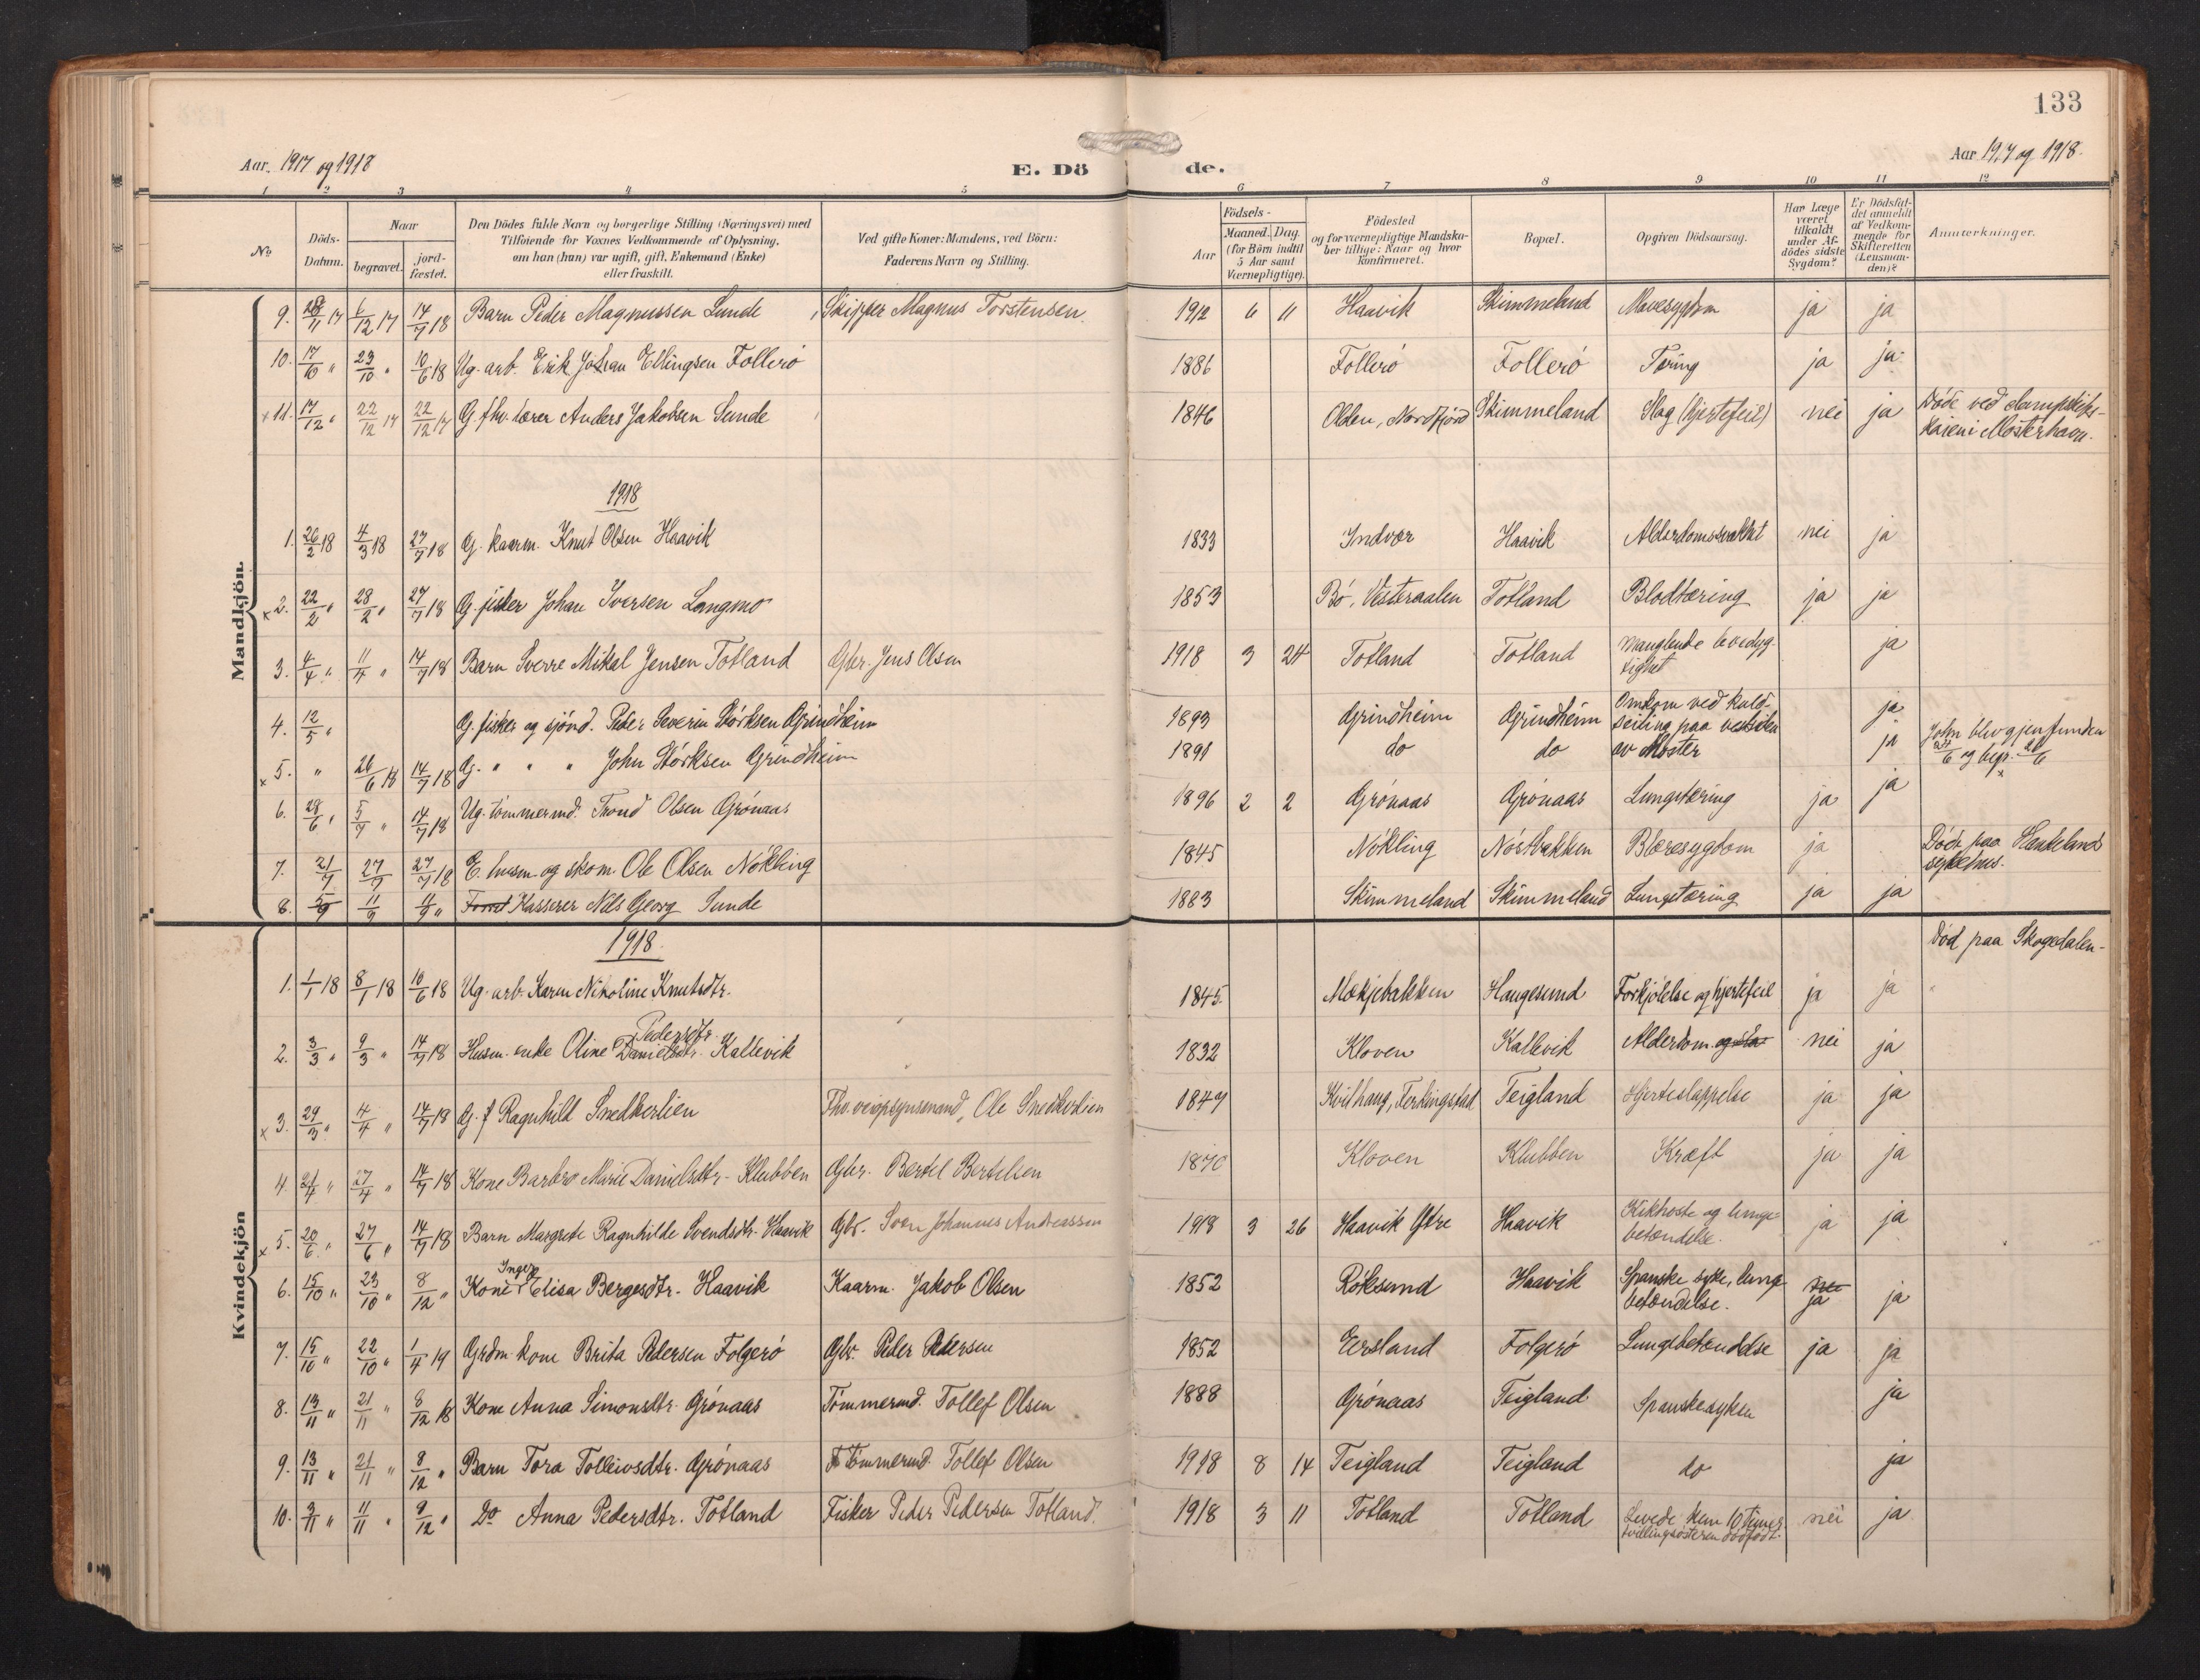 133
Aar. 1917 og 1918
E. Dö de.
Aar 1917 og 1918.
1 2 3 4 5 6 7 8 9 10 11 12
No
Döds-Datum.
Naar
begravet.
jord-fæstet.
Den Dödes fulde Navn og borgerlige Stilling (Næringsvei) med Tilföiende for Voxnes Vedkommende af Oplysning, om han (hun) var ugift, gift, Enkemand (Enke) eller fraskilt.
Ved gifte Koner: Mandens, ved Börn: Faderens Navn og Stilling.
Födsels-
Aar
Maaned. Dag.
(for Börn indtil 5 Aar samt Værnepligtige).
Födested og for værnepligtige Mandskaber tillige: Naar og hvor Konfirmeret.
Bopæl.
Opgiven Dödsaarsag.
Har Læge været tilkaldt under Afdödes sidste Sygdom?
Er Dödsfaldet anmeldt af Vedkommende for Skifteretten (Lensmanden)?
Anmærkninger.
Mandkjön.
9. 28/11 17 6/12 17 14/7 18 Barn Peder Magnussen Sunde Skipper Magnus Torstensen. 1912 6 11 Haavik Skimmeland Mavesygdom ja ja
10. 17/10 " 23/10 " 10/6 18 Ug. arb. Erik Johan Ellingsen Follerö 1886 Follerö Follerö Tæring ja ja
x 11. 17/12 " 22/12 17 22/12 17 G. fhv. lærer Anders Jakobsen Sunde 1846 Olden, Nordfjord Skimmeland Slag (hjertefeil) nei ja Döde ved dampskibs-
kaien i Mosterhavn.
1918
1. 26/2 18 4/3 18 27/7 18 G. kaarm. Knut Olsen Haavik 1833 Indvær Haavik Alderdomssvakhet nei ja
x 2. 22/2 " 28/2 " 27/7 18 G. fisker Johan Iversen Langmo 1853 Bö, Vesteraalen Totland Blodtæring ja ja
3. 4/4 " 11/4 " 14/7 18 Barn Sverre Mikal Jensen Totland Gbr. Jens Olsen 1918 3 24 Totland Totland manglende levedyg-
tighet ja
4. 12/5 " G. fisker og sjömd. Peder Severin Störksen Grindheim 1893 Grindheim Grindheim Omkom ved kuld-
seiling paa vestsiden ja
x 5. " 26/6 18 14/7 18 G. " " " John Störksen Grindheim 1891 do do av Moster ja John blev gjenfunden
6. 28/6 " 5/7 " 14/7 18 Ug. tömmermd. Trond Olsen Grönaas 1896 2 2 Grönaas Grönaas Lungetæring ja ja
7. 21/7 27/7 27/7 18 E. husm. og skom. Ole Olsen Nökling 1845 Nökling Nöstbakken Blæresygdom ja Död paa Haukelands
sykehus.
8. 5/9 11/9 11/9 " Kasserer Nils Georg Sunde 1883 Skimmeland Skimmeland Lungetæring ja ja
Kvindekjön
1918.
Död paa Skogedalen.
1. 1/1 18 8/1 18 10/6 18 Ug. arb. Karen Nikoline Knutsdtr. 1845. Mækjebakken Haugesund Forkjölelse og hjertefeil ja ja "
2. 3/3 " 9/3 " 14/7 18 Husm. enke Oline Danielsdtr. Pedersdtr. Kallevik 1832 Kloven Kallevik Alderdom nei ja
x 3. 29/3 " 4/4 " 14/7 18 G. f Ragnhild Snedkerlien Fhv. veiopsynsmand, Ole Snedkerlien 1847 Kvilhaug, Ferkingstad Teigland Hjerteslappelse ja ja
4. 21/4 " 27/4 " 14/7 18 Kone Barbro Marie Danielsdtr. Klubben Gbr. Bertel Bertelsen 1870 Kloven Klubben Kræft ja ja
x 5. 20/6 " 27/6 " 14/7 18 Barn Margrete Ragnhilde Svendsdtr. Haavik Gbr. Sven Johannes Andreassen 1918 3 26 Haavik Ytre Haavik Kikhoste og lunge-
betændelse. ja ja
6. 15/10 " 23/10 " 8/12 " Kone Inger Elisa Bergesdtr. Haavik Kaarm. Jakob Olsen 1852 Röksund Haavik Spanske syke, lunge-
betændelse. ja ja
7. 15/10 " 22/10 " 1/4 19 Grdm. kone Brita Pedersen Folgerö Gbr. Peder Pedersen 1852 Eersland Folgerö Lungebetændelse ja ja
8. 13/11 " 21/11 " 8/12 18 Kone Anna Simonsdtr. Grönaas Tömmermd. Tollef Olsen 1888 Grönaas Teigland Spanskesyken ja
9. 13/11 " 21/11 " 8/12 " Barn Tora Tolleivsdtr. Grönaas Tömmermd. Tollef Olsen 1918 8 14 Teigland Teigland do ja
10. 3/11 " 11/11 " 9/12 " Do Anna Pedersdtr. Totland Fisker Peder Pedersen Totland. 1918 3 11 Totland Totland Levede kun 10 timer.
tvillingsösteren dödfödt. nei ja